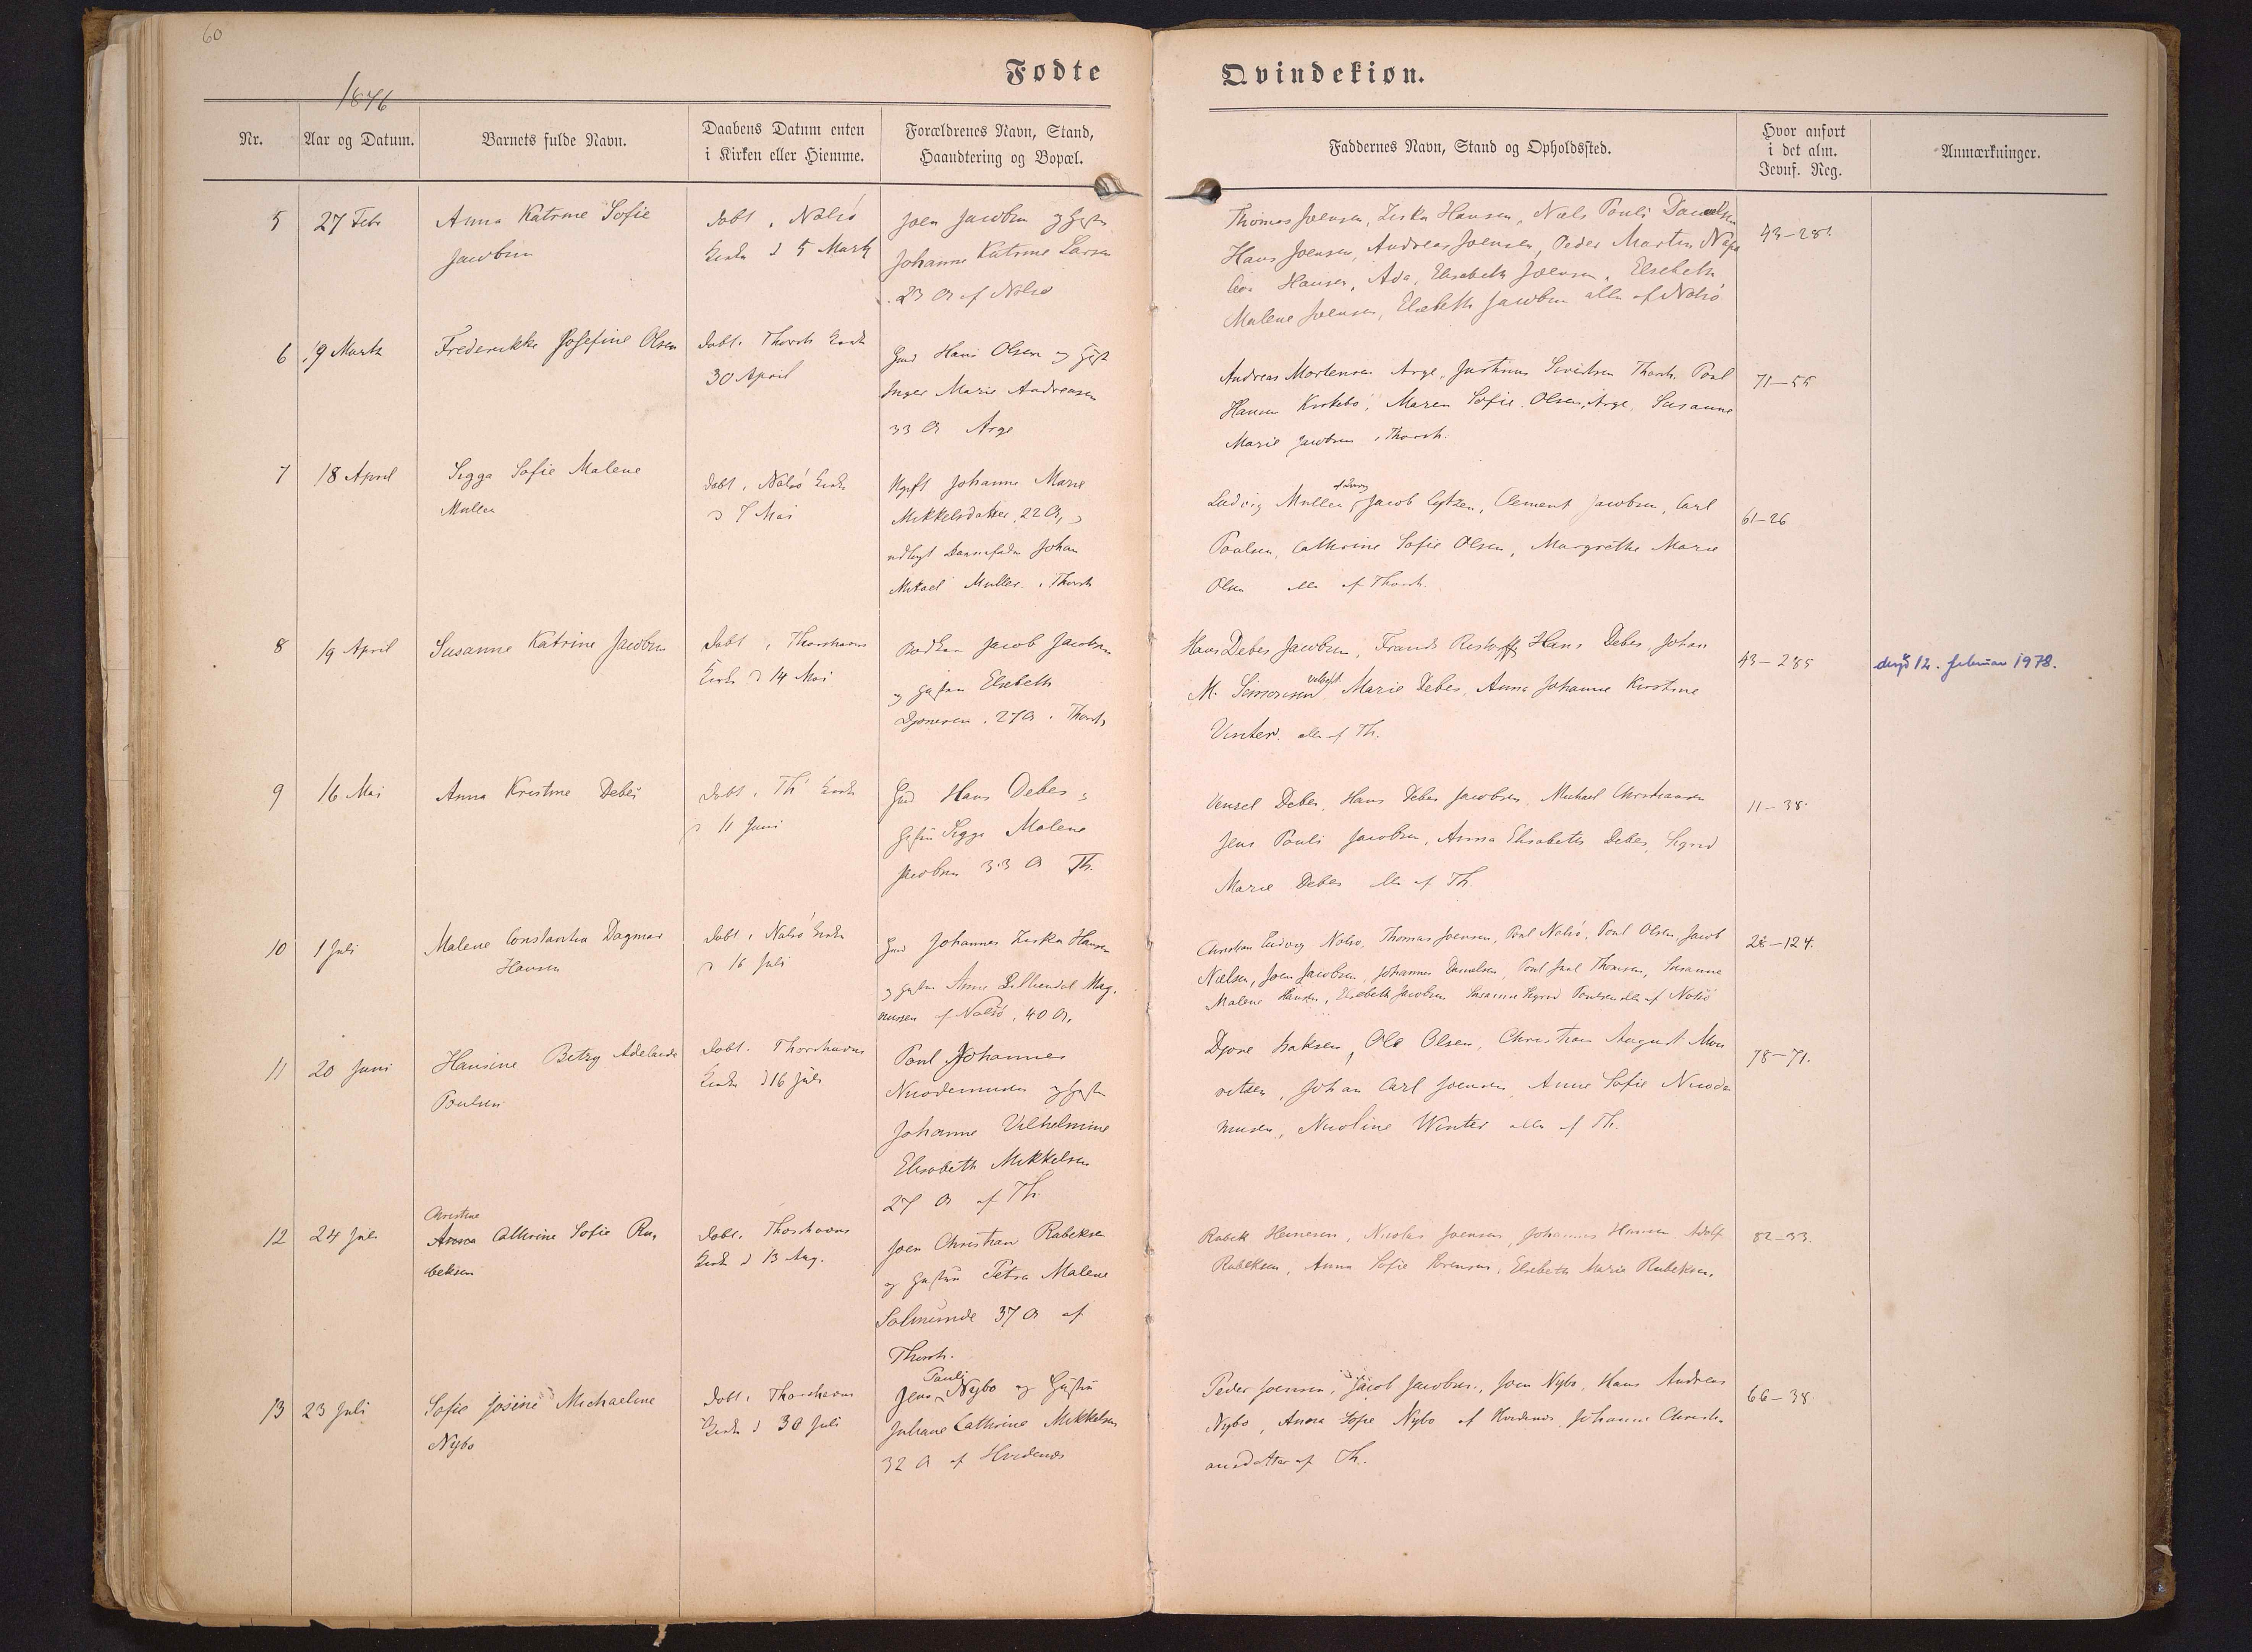 60
Fødte
Qvindekiøn.
1876
Nr.
Aar og Datum.
Barnets fulde Navn.
Daabens Datum enten
i Kirken eller Hiemme.
Forældrenes Navn, Stand,
Haandtering og Bopæl.
Faddernes Navn, Stand og Opholdssted.
Hvor anført
i det alm.
Jevnf. Reg.
Anmærkninger.
5
27 Febr
Anna Katrine Sofie
Jacobsen
dobt i Nolsö
Kirke d 5 Marts
Joen Jacobsen og
Johanne Katrine Larsen
23 A af Nolsö
Thomas Joensen, Ziska Hansen, Niels Pouli Danielsen
Hans Joensen, Andreas Joensen, Peder Martin Napo
leon Hansen, Ada Elisabeth Joensen, Elsebeth
Malene Joensen, Elsebeth Jacobsen alle af Nolsö
43-281
6
19 Marts
Frederikke Josefine Olsen
dobt i Thorsh Kirke
30 April
Hans Olsen og
Inger Marie Andreasen
33 A Arge
Andreas Mortensen Arge, Justinus Sivertsen Thorsh. Poul
Hansen, Maren Sofie Olsen, Arge, Susanne
Marie Jacobsen i Thorsh.
71-55
7
18 April
Sigga Sofie Malene
Muller
dobt i Nolsö Kirke
d 7 Mai
Ugift Johanne Marie
Mikkelsdatter 22 A,
udlagt Barnefader Johan
Mikael Muller i Thorsh
Ludvig Muller, Jacob Lützen, Clement Jacobsen, Carl
Poulsen, Cathrine Sofie Olsen, Margrethe Marie
Olsen alle af Thorsh.
61-26
8
19 April
Susanne Katrine Jacobsen
Dobt i Thorshavns
Kirke d 14 Mai
Jacob Jacobsen
og Elsebeth
Djonesen 27 A. Thorsh
Hans Debes Jacobsen, Frands Restorff, Hans Debes, Johan
M. Simonsen, Marie Debes, Anna Johanne Kirstine
Vinter alle af Th.
43-285
12. februar 1978.
9
16 Mai
Anna Kristine Debes
Dobt i Th Kirke
d 11 Juni
Hans Debes og
Sigga Malene
Jacobsen 33 A Th.
Venzel Debes, Hans Debes Jacobsen, Michael Christiansen
Jens Pouli Jacobsen, Anna Elisabeth Debes, Sigrid
Marie Debes alle af Th.
11-38
10
1 Juli
Malene Constantia Dagmar
Hansen
dobt i Nolsö Kirke
d 16 Juli
Johannes Ziska Hansen
og Anne Mag.
nussen af Nolsö, 40 A.
Christian Ludvig Nolsö, Thomas Joensen, Poul Nolsö, Poul Olsen, Jacob
Nielsen, Joen Jacobsen, Johannes Danielsen, Poul Juul Thomsen, Susanne
Malene Hansen, Elsebeth Jacobsen Susanna Sigrid Poulsen alle af Nolsö
28-124.
11
20 Juni
Hansine Betzy Adelaide
Poulsen
dobt i Thorshavns
Kirke d 16 Juli
Poul Johannes
Nicodemussen og
Johanne Vilhelmine
Elisabeth Mikkelsen
27 A af Th.
Djone Isaksen, Ole Olsen, Christian August Mou
ritsen, Johan Carl Joensen, Anne Sofie Nicode
musen, Nicoline Winter alle af Th.
78-71.
12
24 Juli
Christine
Anna Cathrine Sofie Ra,
beksen
dobt i Thorshavns
Kirke d 13 Aug.
Joen Christian Rabeksen
og Petra Malene
Salmunde 37 A af
Thorsh.
Rabek Heinesen, Nicolas Joensen, Johannes Hansen, Adolf
Rabeksen, Anna Sofie Sörensen, Elsebeth Marie Rabeksen,
82-33.
13
23 Juli
Sofie Josine Michaeline
Nybo
Dobt i Thorshavns
Kirke d 30 Juli
Pauli
Jens Nybo og
Juliane Cathrine Mikkelsen
32 A af Hvidenæs
Peder Joensen, Jacob Jacobsen, Joen Nybo, Hans Andreas
Nybo, Anna Sofie Nybo af Hvidenæs, Johanne Christi-
ansdatter af Th.
66-38